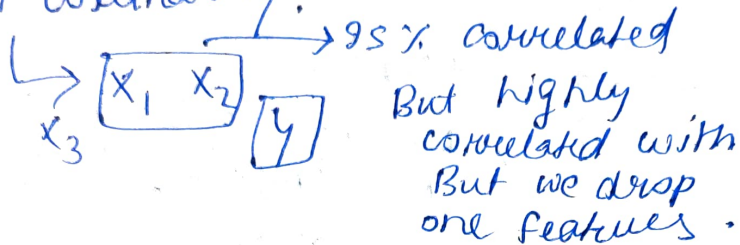 95% correlated
X1 X2
But highly
X3
y
correlated with
But we drop
one features.